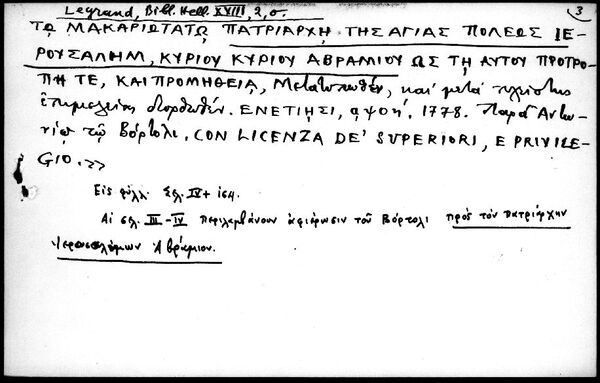 Legrand, Bibl. Hell. XVIII, 2, σ.
3
ΤΩ ΜΑΚΑΡΙΩΤΑΤΩ ΠΑΤΡΙΑΡΧΗ ΤΗΣ ΑΓΙΑΣ ΠΟΛΕΩΣ ΙΕ-
ΡΟΥΣΑΛΗΜ, ΚΥΡΙΟΥ ΚΥΡΙΟΥ ΑΒΡΑΜΙΟΥ ΩΣ ΤΗ ΑΥΤΟΥ ΠΡΟΤΡΟ-
ΠΗ ΤΕ, ΚΑΙ ΠΡΟΜΗΘΕΙΑ, Μετατυπωθέν, καὶ μετὰ πλείστης
ἐπιμελείας διορθωθέν. ΕΝΕΤΙΗΣΙ, αψοή. 1778. Παρὰ Ἀντω-
νίῳ τῷ Βόρτολι. CON LICENZA DE' SUPERIORI, E PRIVILE-
GIO.»
Εἰς φύλλ. Σελ. IV +
Αἱ σελ. III-IV περιλαμβάνουν ἀφιέρωσιν τοῦ Βόρτολι πρὸς τὸν πατριάρχην
Ἱεροσολύμων Ἀβράμιον.